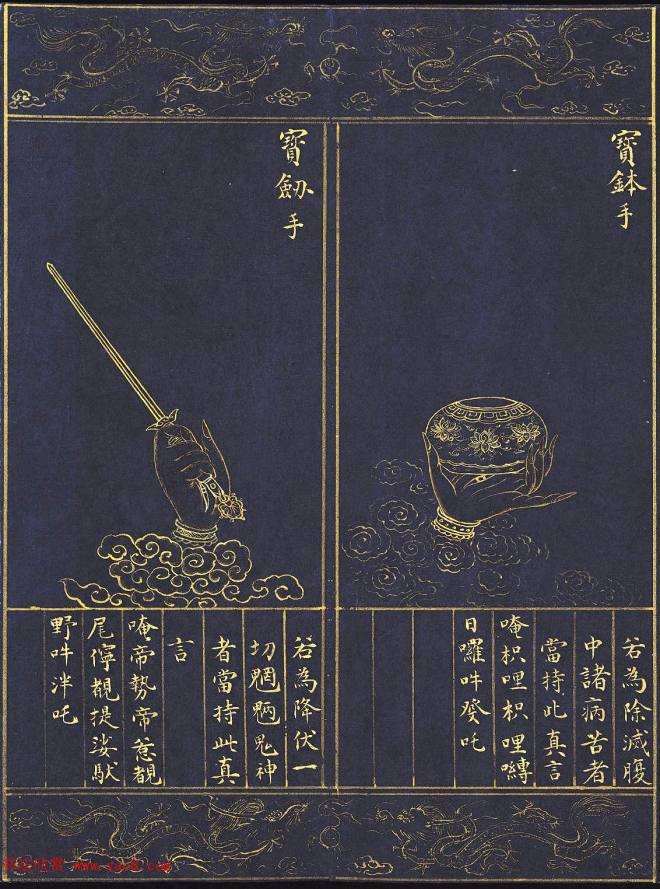 寶鉢手
若為除滅腹
中諸病苦者
當持此真言
唵枳哩枳哩嚩
日囉吽發吒
寶劔手
若為降伏一
切魍魎鬼神
者當持此真
言
唵帝勢帝惹覩
尾儜覩提娑馱
野吽泮吒